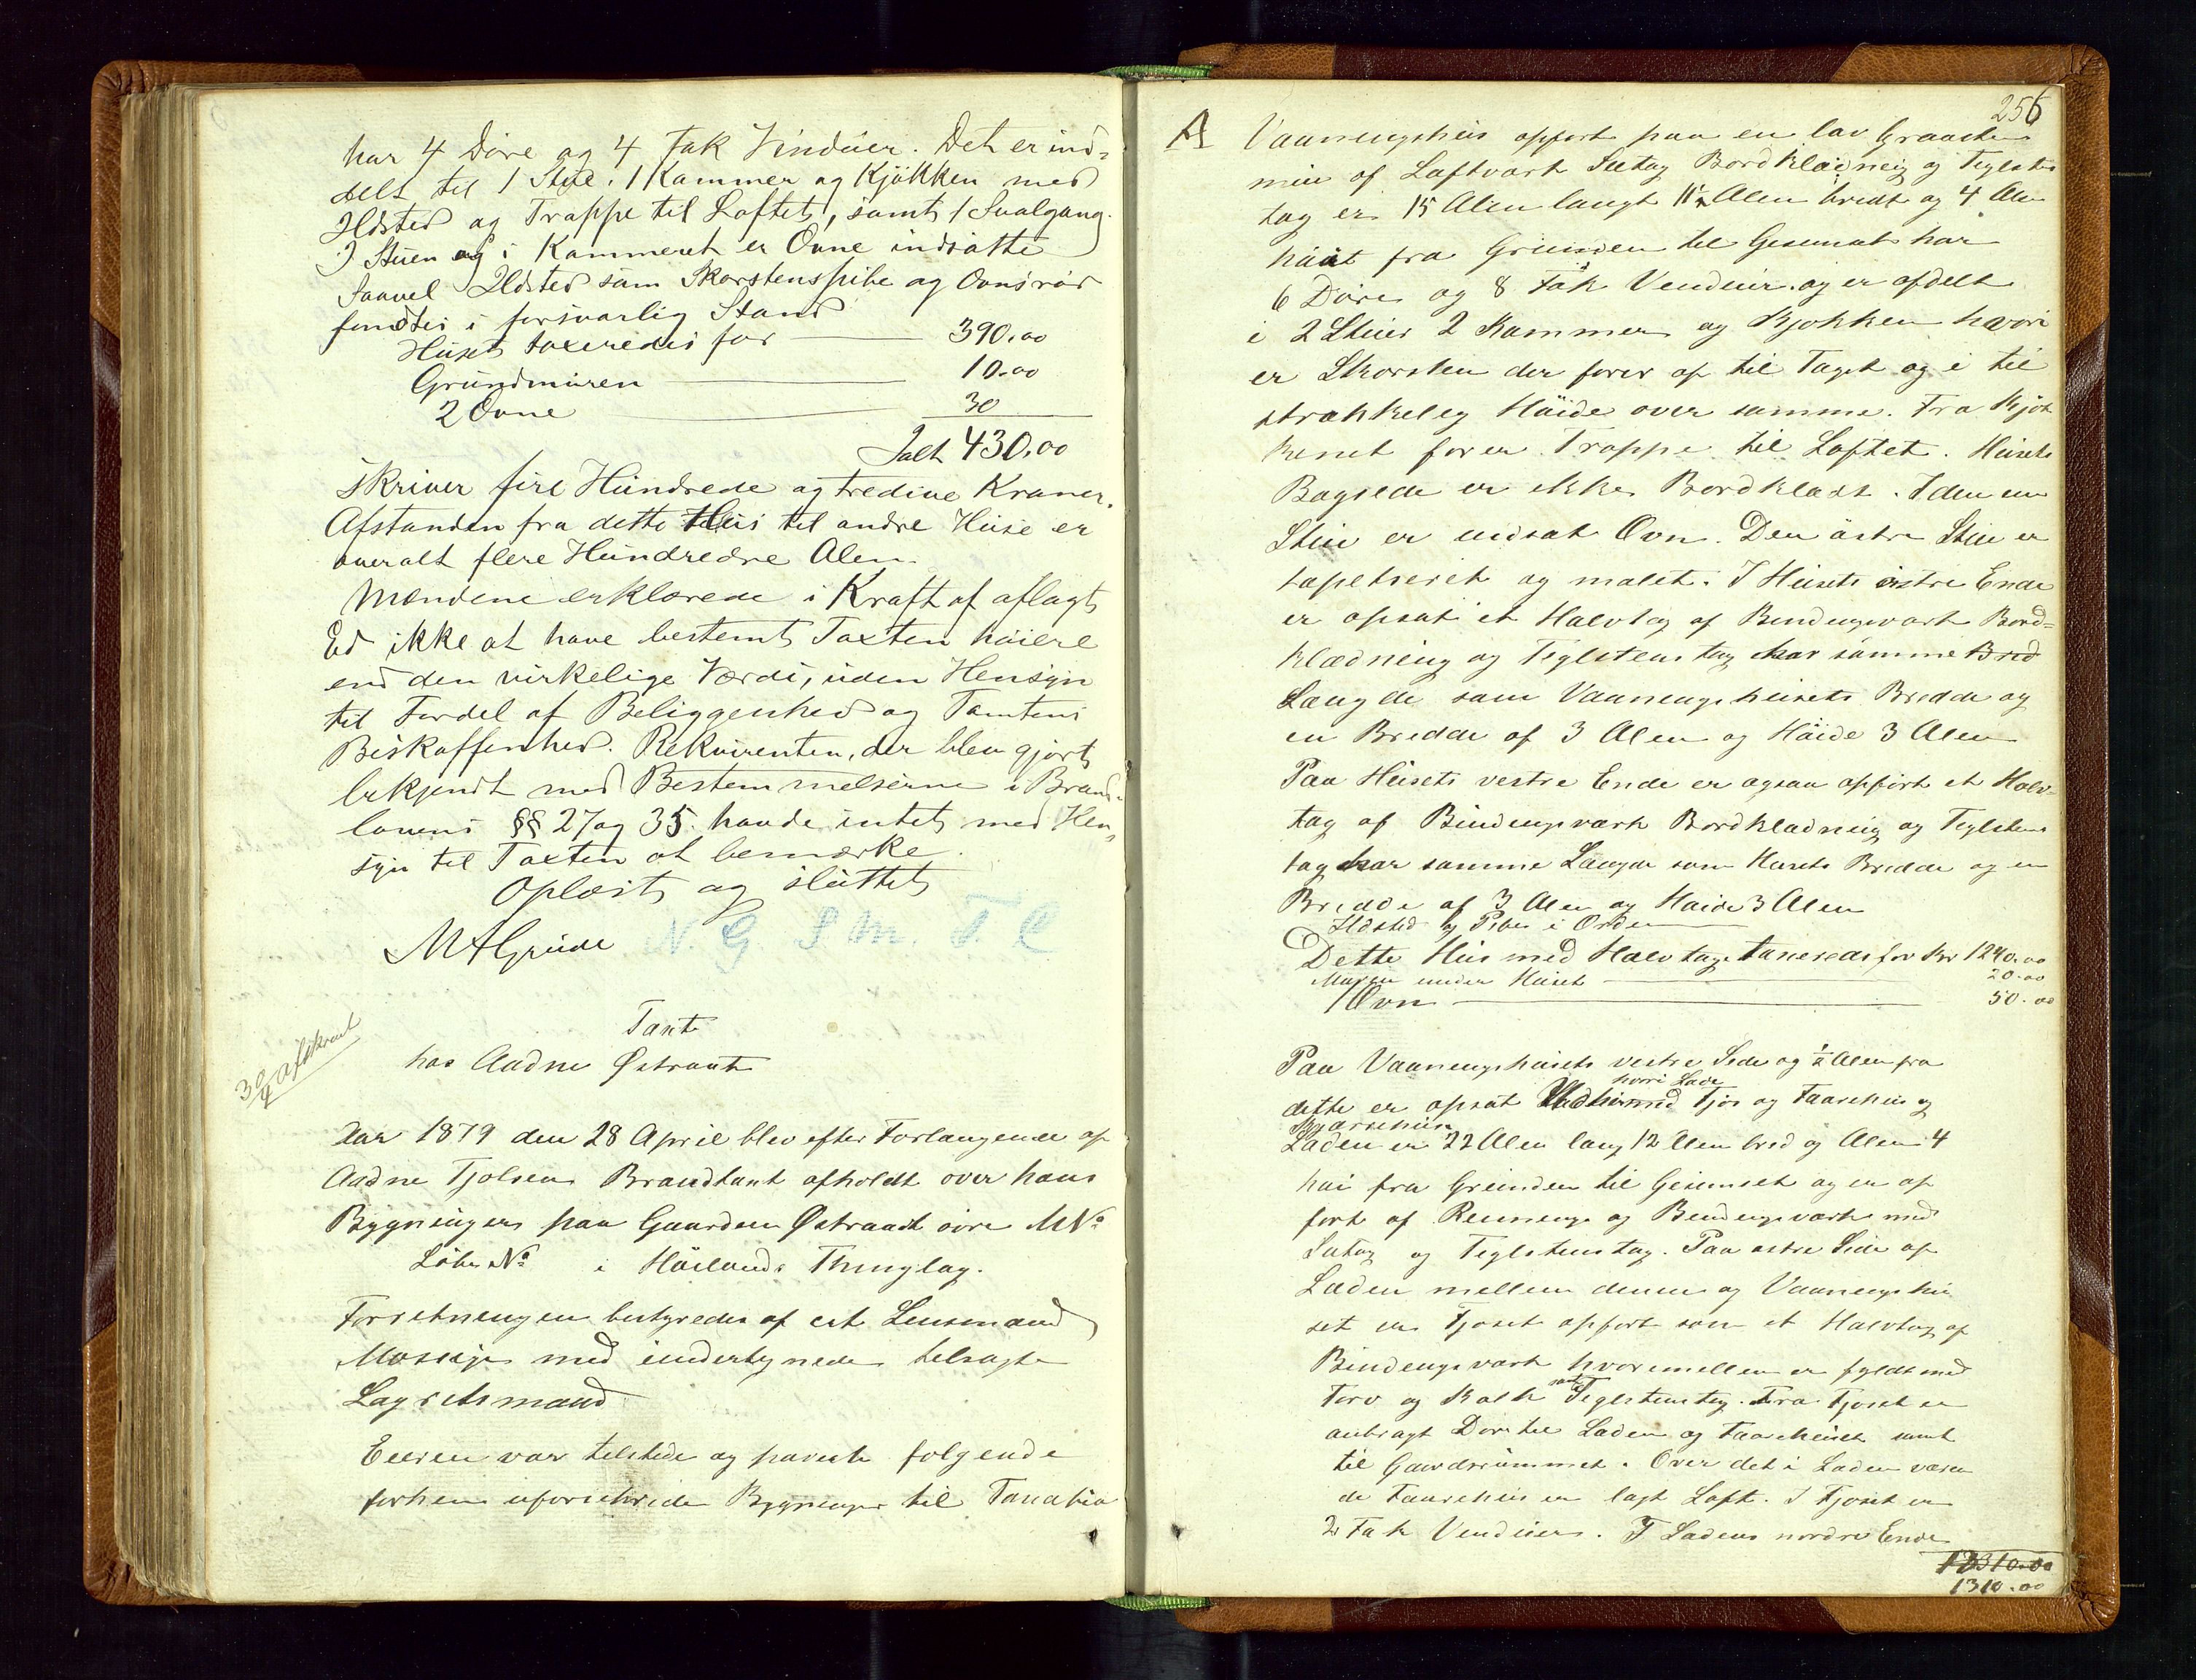 har 4 Döre og 4 Fak Vinduer. Det er ind=
delt til 1 Stue, 1 Kammer og Kjökken med
Ildsted og Trappe til Loftet, samt 1 Svalgang.
I Stuen og i Kammeret er Ovne indsatte
Saavel Ildsted som Skorstenspibe og Ovnsrör
fandtes i forsvarlig Stand
Huset taxeredes for 390.00
Grundmuren 10.00
2 Ovne 30
Ialt 430.00
skriver fire Hundrede og tredive Kroner.
Afstanden fra dette Hus til andre Huse er
overalt flere Hundredre Alen.
Mændene erklærede i Kraft af aflagt
Ed ikke at have bestemt Taxten höiere
end den virkelige Værdi, uden Hensyn
til Fordel af Beliggenhed og Tomtens
Beskaffenhed. Rekvirenten, der blev gjort
bekjendt med Bestemmelserne i Brand-
lovens §§ 27 og 35. havde intet med Hen-
syn til Taxten at bemærke.
Oplæst og sluttet
M A Grude N. G. S. M. T. C
30/4 afskrevet
Taxt
hos Aadne Østraat
Aar 1879 den 28 April blev efter Forlangende af
Aadne Tjølsen Brandtaxt afholdt over hans
Bygninger paa Gaarden Østraadt övre M No
Löbe No i Höilands Thinglag.
Forretningen bestyredes af cst Lensmand
Mossige med undertegnede tilsagte
Lagrettsmænd
Eieren var tilstede og paviste følgende
forhen uforsikrede Bygninger til Taxation
256
A Vaaningshus opfort paa en lav Graasten
mur af Laftværk Sutag Bordklædning og Teglsten
tag er 15 Alen langt 11½ Alen bredt og 4 Alen
höit fra Grunden til Gesimset har
6 Döre og 8 Fak Venduer og er afdelt
i 2 Stuer 2 Kammer og Kjøkken hvori
er Skorsten der fører op til Taget og i til
strækkelig Höide over samme. Fra Kjøk
kenet fører Trappe til Loftet. Husets
Bagside er ikke Bordklædt. I den ene
Stue er indsat Ovn. Den östre Stue er
tapetseret og malet. I Husets östre Ende
er opsat et Halvtag af Bindingsværk Bord=
klædning og Teglstenstag har samme Bred
Længde som Vaaningshusets Bredde og
en Bredde af 3 Alen og Höide 3 Alen
Paa Husets vestre Ende er ogsaa opfört et Halv-
tag af Bindingsværk Bordklædning og Teglstens
tag har samme Længde som Husets Bredde og en
Bredde af 3 Alen og Höide 3 Alen
Ildsted og Piber i Orden
Dette Hus med Halvtage taxeredes for Kr 1240.00
Muren under Huset 20.00
1 Ovn 50.00
Paa Vaaningshusets vestre Side og ½ Alen fra
hvori Lade
dette er opsat Udhus med Fjøs og Faarehus og
Kjærrehus
Laden er 22 Alen lang 12 Alen bred og Alen 4
höi fra Grunden til Gesimset og er op
fort af Rennings og Bindingsværk med
Sutag og Teglstenstag. Paa östre Side af
Laden mellem denne og Vaaningshu
set er Fjøset opfort som et Halvtag af
Bindingsværk hvorimellem er fyldt med
samt
Torv og Kalk Teglstenstag. Fra Fjøset er
anbragt Dør til Laden og Faarehuset samt
til Gaardsrummet. Over det i Laden væren
de Faarehus er lagt Loft. I Fjøset er
2 Fak Venduer. I Ladens nordre Ende
12310.00
1310.00